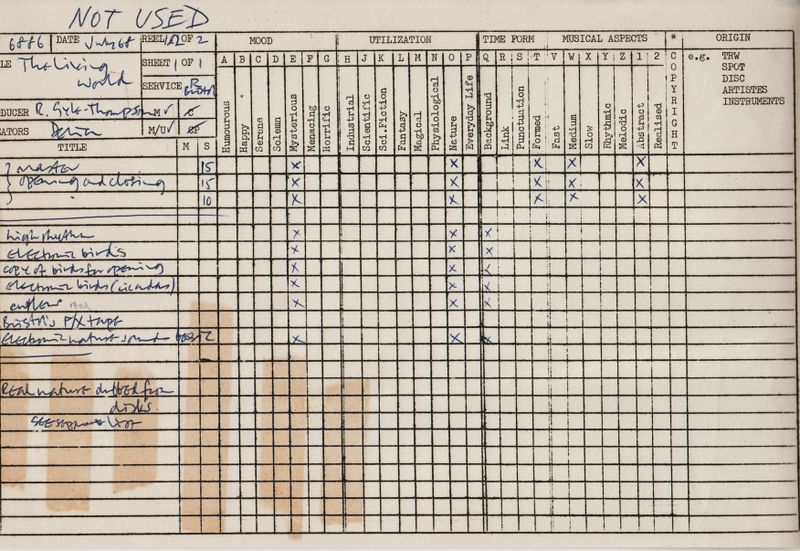 NOT USED
6886 DATE July 68 REEL 1/2 OF 2 MOOD UTILIZATION TIME FORM MUSICAL ASPECTS * ORIGIN
LE The Living World SHEET 1 OF 1 A B C D E F G H J K L M N O P Q R S T V W X Y Z 1 2 COPYRIGHT e.g. TRW
SPOT
DISC
ARTISTES
INSTRUMENTS
SERVICE R Bristol
DUCER R. Gyle-Thompson M ✓ S
ATORS Delia M/U ✓ EP
TITLE M S Humourous Happy Serene Solemn Mysterious Menacing Horrific Industrial Scientific Sci.Fiction Fantasy Magical Physiological Nature Everyday Life Background Link Punctuation Formed Fast Medium Slow Rhythmic Melodic Abstract Realised
} master 15 x x x x x
} opening and closing 15 x x x x x
} " 10 x x x x x
high rhythm x x x
electronic birds x x x
copy of birds for opening x x x
electronic birds (cicadas) x x x
x x x
Bristol's F/X tape
electronic nature sounds x x x
Real nature dubbed from
disks.
see separate list